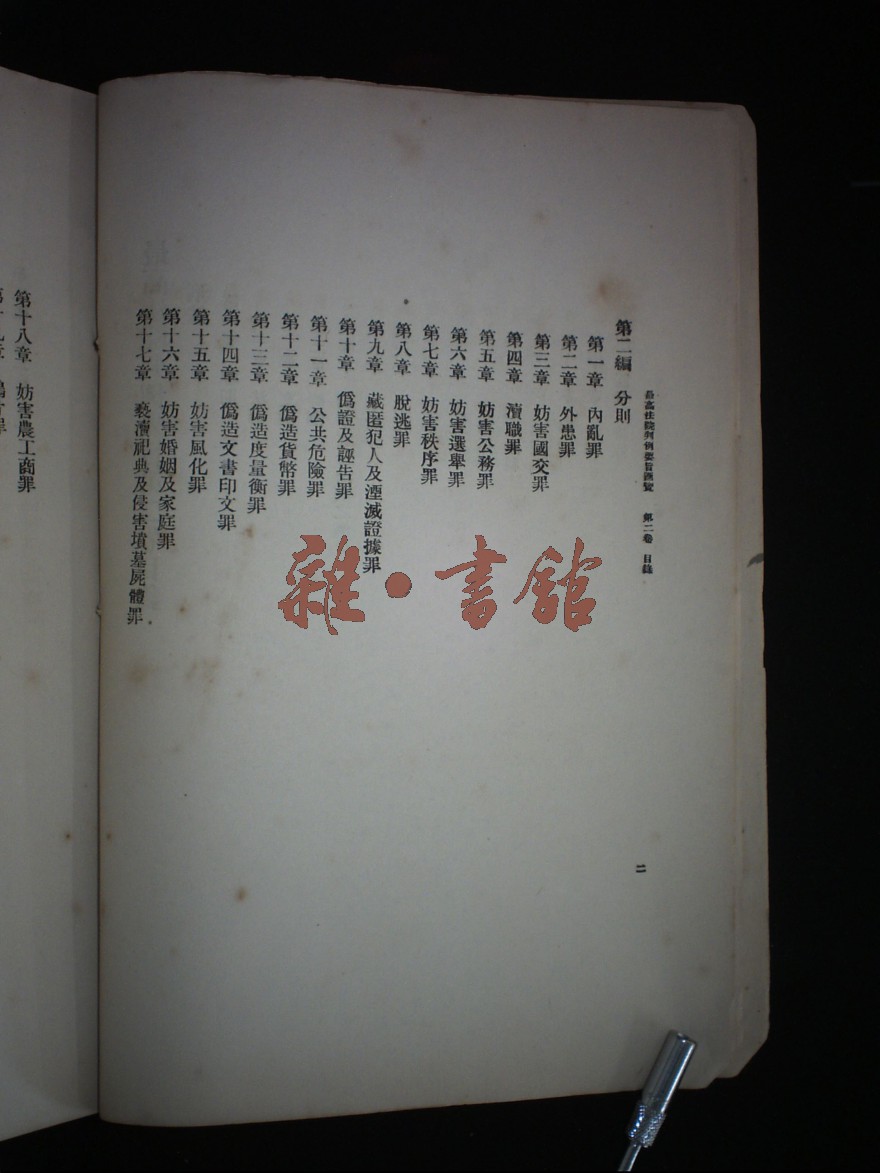 最高法院判例要旨匯覽 第二卷 目錄
二
第二編 分則
第一章 內亂罪
第二章 外患罪
第三章 妨害國交罪
第四章 瀆職罪
第五章 妨害公務罪
第六章 妨害選舉罪
第七章 妨害秩序罪
第八章 脫逃罪
第九章 藏匿犯人及湮滅證據罪
第十章 僞證及誣告罪
第十一章 公共危險罪
第十二章 僞造貨幣罪
第十三章 僞造度量衡罪
第十四章 僞造文書印文罪
第十五章 妨害風化罪
第十六章 妨害婚姻及家庭罪
第十七章 褻瀆祀典及侵害墳墓屍體罪
第十八章 妨害農工商罪
雜·書館